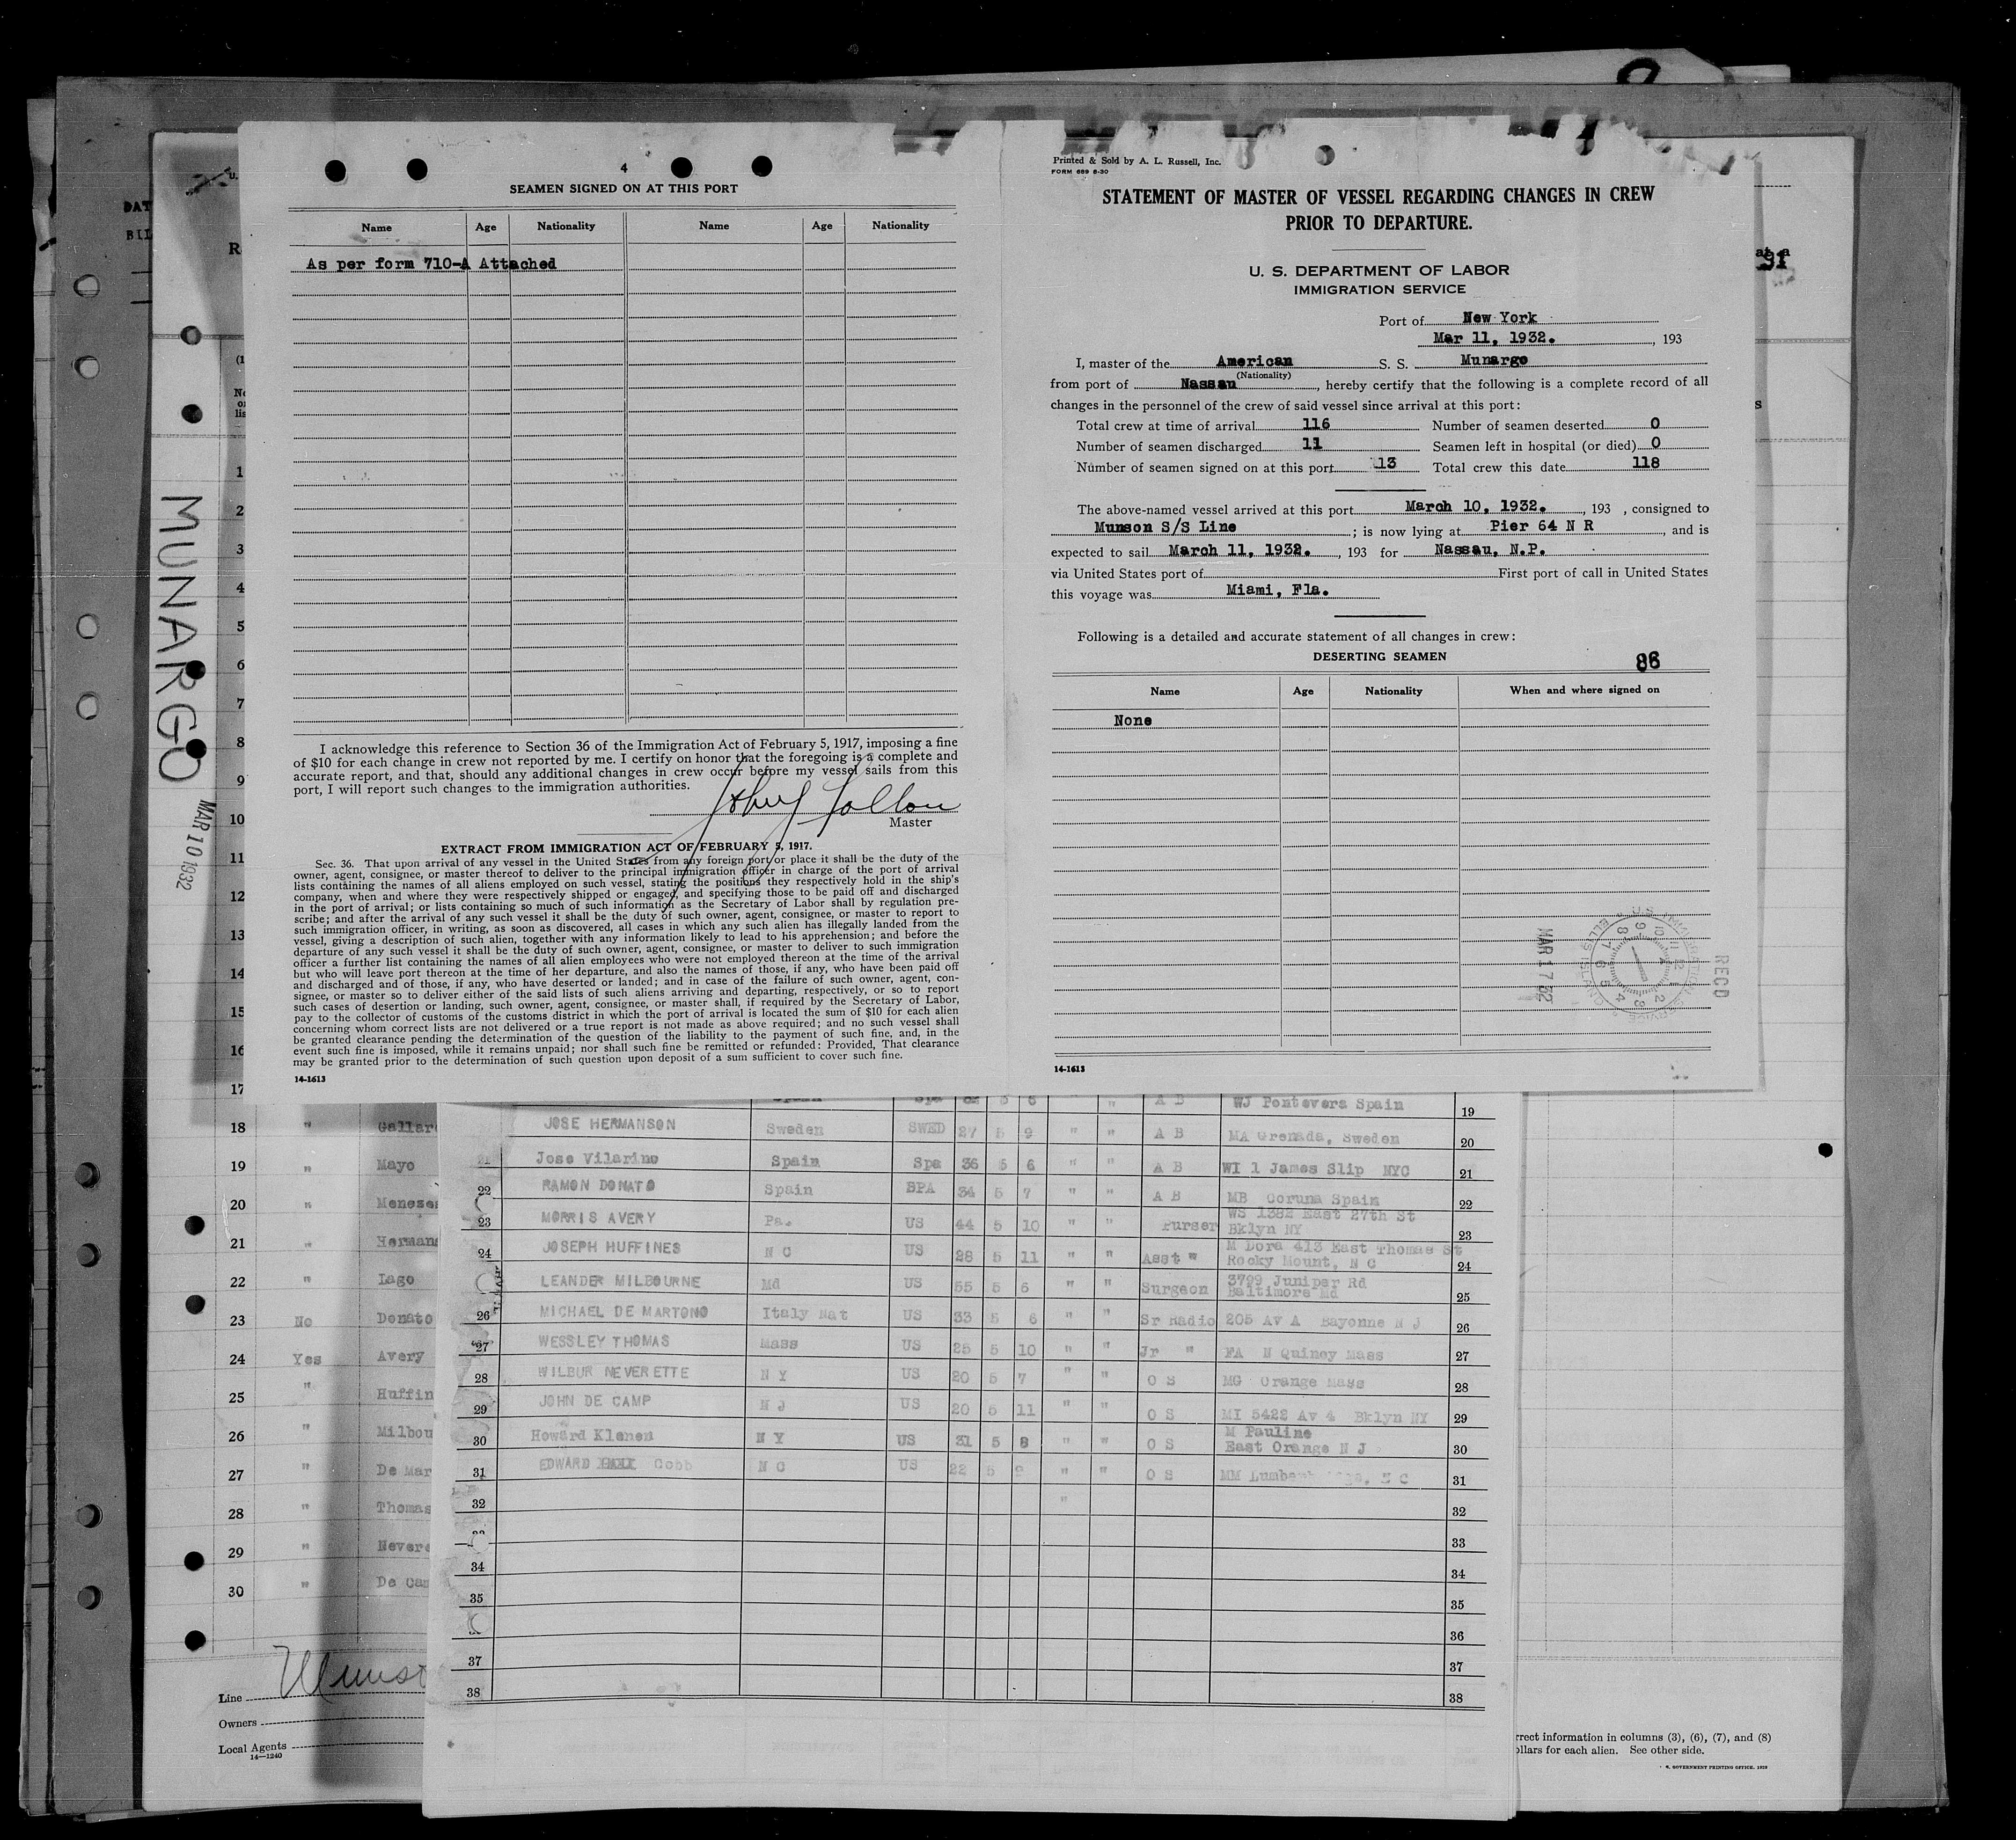 4
SEAMEN SIGNED ON AT THIS PORT
Name Age Nationality Name Age Nationality
As per form 710-A Attached
I acknowledge this reference to Section 36 of the Immigration Act of February 5, 1917, imposing a fine
of $10 for each change in crew not reported by me. I certify on honor that the foregoing is a complete and
accurate report, and that, should any additional changes in crew occur before my vessel sails from this
port, I will report such changes to the immigration authorities.
Master
EXTRACT FROM IMMIGRATION ACT OF FEBRUARY 5, 1917.
Sec. 36. That upon arrival of any vessel in the United States from any foreign port or place it shall be the duty of the
owner, agent, consignee, or master thereof to deliver to the principal immigration officer in charge of the port of arrival
lists containing the names of all aliens employed on such vessel, stating the positions they respectively hold in the ship's
company, when and where they were respectively shipped or engaged, and specifying those to be paid off and discharged
in the port of arrival; or lists containing so much of such information as the Secretary of Labor shall by regulation pre-
scribe; and after the arrival of any such vessel it shall be the duty of such owner, agent, consignee, or master to report to
such immigration officer, in writing, as soon as discovered, all cases in which any such alien has illegally landed from the
vessel, giving a description of such alien, together with any information likely to lead to his apprehension; and before the
departure of any such vessel it shall be the duty of such owner, agent, consignee, or master to deliver to such immigration
officer a further list containing the names of all alien employees who were not employed thereon at the time of the arrival
but who will leave port thereon at the time of her departure, and also the names of those, if any, who have been paid off
and discharged and of those, if any, who have deserted or landed; and in case of the failure of such owner, agent, con-
signee, or master so to deliver either of the said lists of such aliens arriving and departing, respectively, or so to report
such cases of desertion or landing, such owner, agent, consignee, or master shall, if required by the Secretary of Labor,
pay to the collector of customs of the customs district in which the port of arrival is located the sum of $10 for each alien
concerning whom correct lists are not delivered or a true report is not made as above required; and no such vessel shall
be granted clearance pending the determination of the question of the liability to the payment of such fine, and, in the
event such fine is imposed, while it remains unpaid; nor shall such fine be remitted or refunded: Provided, That clearance
may be granted prior to the determination of such question upon deposit of a sum sufficient to cover such fine.
14-1613
Printed & Sold by A. L. Russell, Inc.
FORM 689 8-30
STATEMENT OF MASTER OF VESSEL REGARDING CHANGES IN CREW
PRIOR TO DEPARTURE.
U. S. DEPARTMENT OF LABOR
IMMIGRATION SERVICE
Port of New York
Mar 11, 1932. , 193
I, master of the American S. S. Munargo
(Nationality)
from port of Nassau , hereby certify that the following is a complete record of all
changes in the personnel of the crew of said vessel since arrival at this port:
Total crew at time of arrival 116 Number of seamen deserted 0
Number of seamen discharged 11 Seamen left in hospital (or died) 0
Number of seamen signed on at this port 13 Total crew this date 118
The above-named vessel arrived at this port March 10, 1932. , 193 , consigned to
Munson S/S Line ; is now lying at Pier 64 N R , and is
expected to sail March 11, 1932. , 193 for Nassau, N.P.
via United States port of First port of call in United States
this voyage was Miami, Fla.
Following is a detailed and accurate statement of all changes in crew:
DESERTING SEAMEN 86
Name Age Nationality When and where signed on
None
RECD
MAR 17 32
U.S. IMMIGRATION SERVICE ELLIS ISLAND
14-1613
MUNARGO
MAR 10 1932
DAT
BIL
1
2
3
4
5
6
7
8
9
10
11
12
13
14
15
16
17
18 " Gallar
19 " Mayo
20 " Meneses
21 " Hermans
22 " Iago
23 No Donato
24 Yes Avery
25 " Huffin
26 " Milbou
27 " De Mar
28 " Thomas
29 " Nevere
30 " De Cam
Line
Owners
Local Agents
14-1240
WJ Pontevera Spain 19
JOSE HERMANSON Sweden SWED 27 5 9 " " A B MA Grenada, Sweden 20
21 Jose Vilarino Spain Spa 36 5 6 " " A B WI 1 James Slip NYC 21
22 RAMON DONATO Spain SPA 34 5 7 " " A B MB Coruna Spain 22
23 MORRIS AVERY Pa. US 44 5 10 " " Purser WS 1382 East 27th St
Bklyn NY 23
24 JOSEPH HUFFINES N C US 28 5 11 " " Asst " M Dora 413 East Thomas St
Rocky Mount, N C 24
LEANDER MILBOURNE Md US 55 5 5 " " Surgeon 3799 Juniper Rd
Baltimore Md 25
26 MICHAEL DE MARTONO Italy Nat US 33 5 6 " " Sr Radio 205 Av A Bayonne N J 26
27 WESSLEY THOMAS Mass US 25 5 10 " " Jr " FA N Quincy Mass 27
28 WILBUR NEVERETTE N Y US 20 5 7 " " O S MG Orange Mass 28
29 JOHN DE CAMP N J US 20 5 11 " " O S MI 5422 Av 4 Bklyn NY 29
30 Howard Klenen N Y US 31 5 8 " " O S M Pauline
East Orange N J 30
31 EDWARD Cobb N C US 22 5 9 " " O S MM N C 31
32 " 32
33
34 34
35 35
36
37 37
38 38
rrect information in columns (3), (6), (7), and (8)
ollars for each alien. See other side.
GOVERNMENT PRINTING OFFICE. 1929